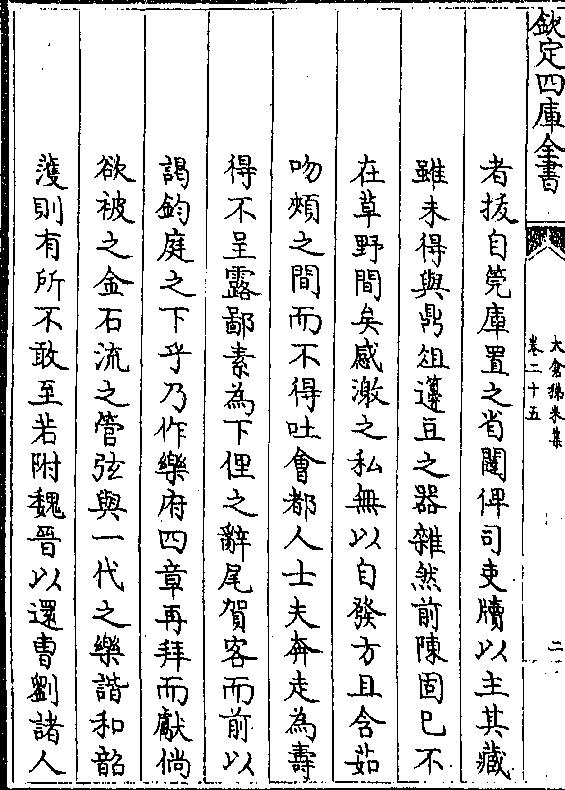 欽定四庫全書
太倉稊米集
卷二十五
二
者拔自筦庫置之省闥俾司吏牘以主其藏
雖未得與鼎俎籩豆之器雜然前陳固已不
在草野間矣感激之私無以自發方且含茹
吻頰之間而不得吐會都人士夫奔走為壽
得不呈露鄙素為下俚之辭尾賀客而前以
謁鈞庭之下乎乃作樂府四章再拜而獻倘
欲被之金石流之管弦與一代之樂諧和韶
頀則有所不敢至若附魏晉以還曹劉諸人